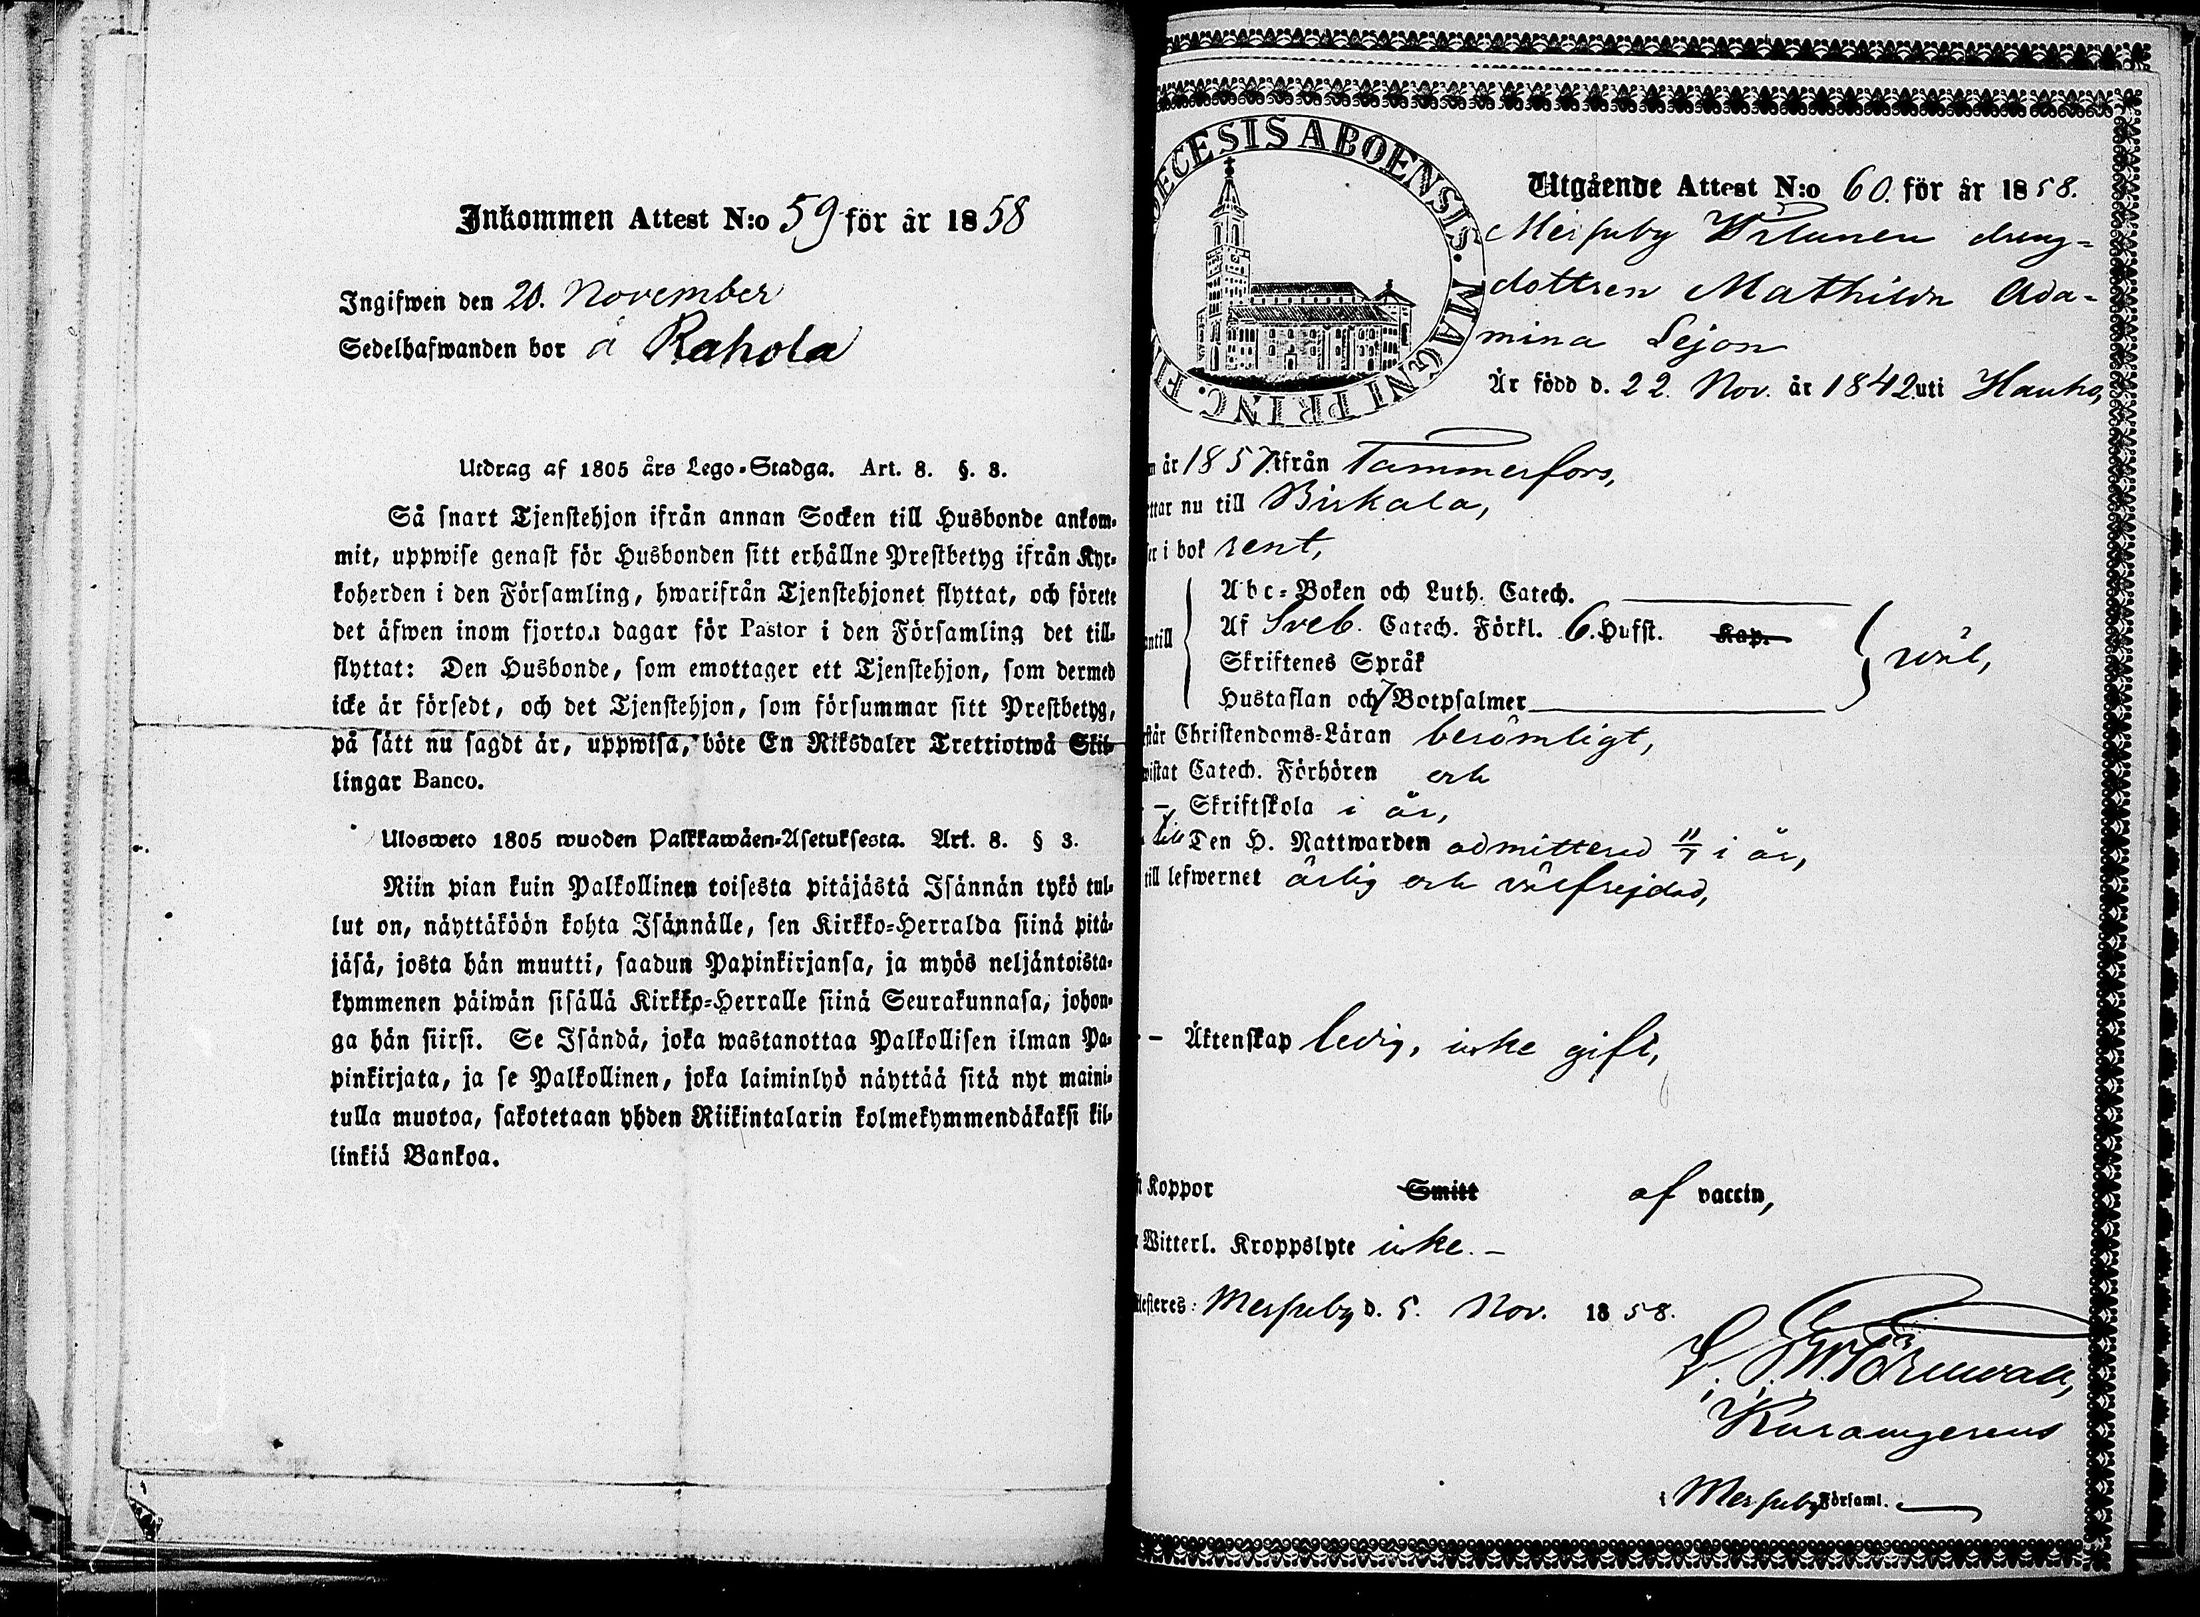 Inkommen Attest N:o 59 för år 1858
Ingifwen den 20. November
Sedelhafwanden bor å Rahola
Utdrag af 1805 års Lego-Stadga. Art. 8. §. 8.
Så snart Tjenstehjon ifrån annan Socken till Husbonde ankom-
mit, uppwise genast för Husbonden sitt erhållne Prestbetyg ifrån Kyr-
koherden i den Församling, hwarifrån Tjenstehjonet flyttat, och förete
det äfwen inom fjorton dagar för Pastor i den Församling det till-
flyttat: Den Husbonde, som emottager ett Tjenstehjon, som dermed
icke är försedt, och det Tjenstehjon, som försummar sitt Prestbetyg,
på sätt nu sagdt är, uppwisa, böte En Riksdaler Trettiotwå Skil-
lingar Banco.
Ulosweto 1805 wuoden Palkkawäen-Asetuksesta. Art. 8. § 3.
Niin pian kuin Palkollinen toisesta pitäjästä Isännän tykö tul-
lut on, näyttäköön kohta Isännälle, sen Kirkko-Herralda siinä pitä-
jäsä, josta hän muutti, saadun Papinkirjansa, ja myös neljäntoista-
kymmenen päiwän sisällä Kirkko-Herralle siinä Seurakunnasa, johon-
ga hän siirsi. Se Isändä, joka wastanottaa Palkollisen ilman Pa-
pinkirjata, ja se Palkollinen, joka laiminlyö näyttää sitä nyt maini-
tulla muotoa, sakotetaan yhden Riikintalarin kolmekymmendäkaksi kil-
linkiä Bankoa.
ECESIS ABOENSIS. MAGNI PRINC. F
Utgående Attest N:o 60. för år 1858.
Messuby dreng-
dottren Mathilda Ada-
mina Lejon
Är född d. 22. Nov. år 1842 uti Hauho,
år 1857 ifrån Tammerfors,
ttar nu till Birkala,
ser i bok rent,
antill
Abc-Boken och Luth. Catech.
Af Sveb. Catech. Förkl. 6. Hufst. Kap.
Skriftenes Språk
Hustaflan och 7 Botpsalmer
wäl,
står Christendoms-Läran berömligt,
wistat Catech. Förhören och
– Skriftskola i år,
till Den H. Nattwarden admitterad 11/7 i år,
till lefwernet ärlig och välfrejdad,
– Äktenskap ledig, icke gift,
Koppor Smitt af vaccin,
Witterl. Kroppslyte icke. –
Messuby d. 5. Nov. 1858.
Törnwall,
i Messuby Församl.